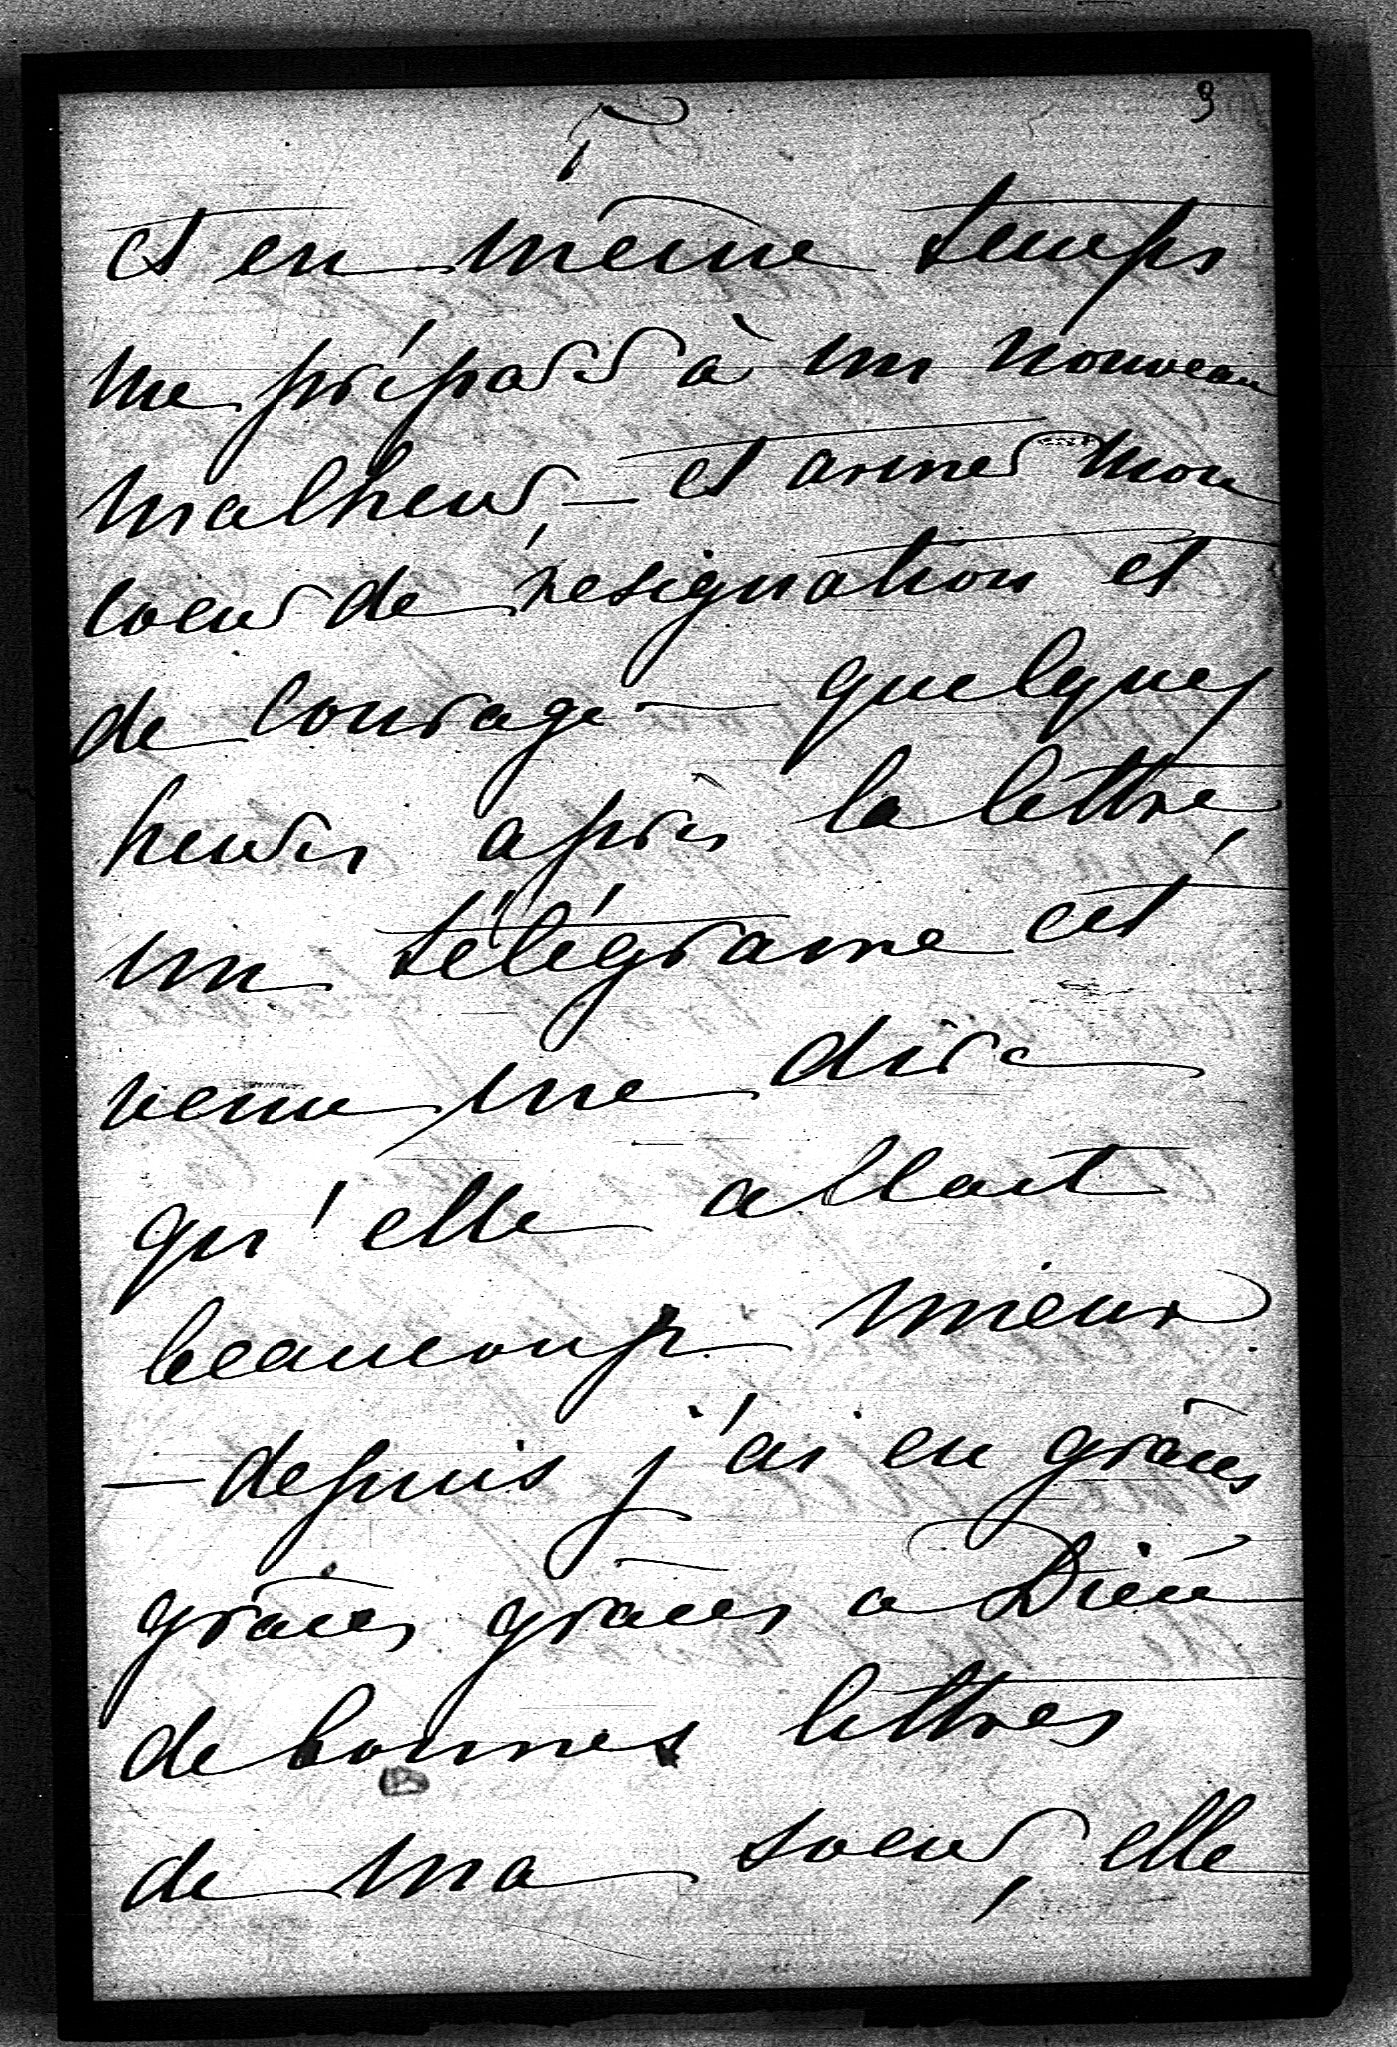 9
5
et en même temps
me préparer à un nouveau
malheur, — et armer mon
coeur de résignation et
de courage — quelques
heures après la lettre,
un télégrame est
venu me dire
qu'elle allait
beaucoup mieux
— depuis j'ai eu grâces
grâces grâces a Dieu
de bonnes lettres
de ma soeur, elle